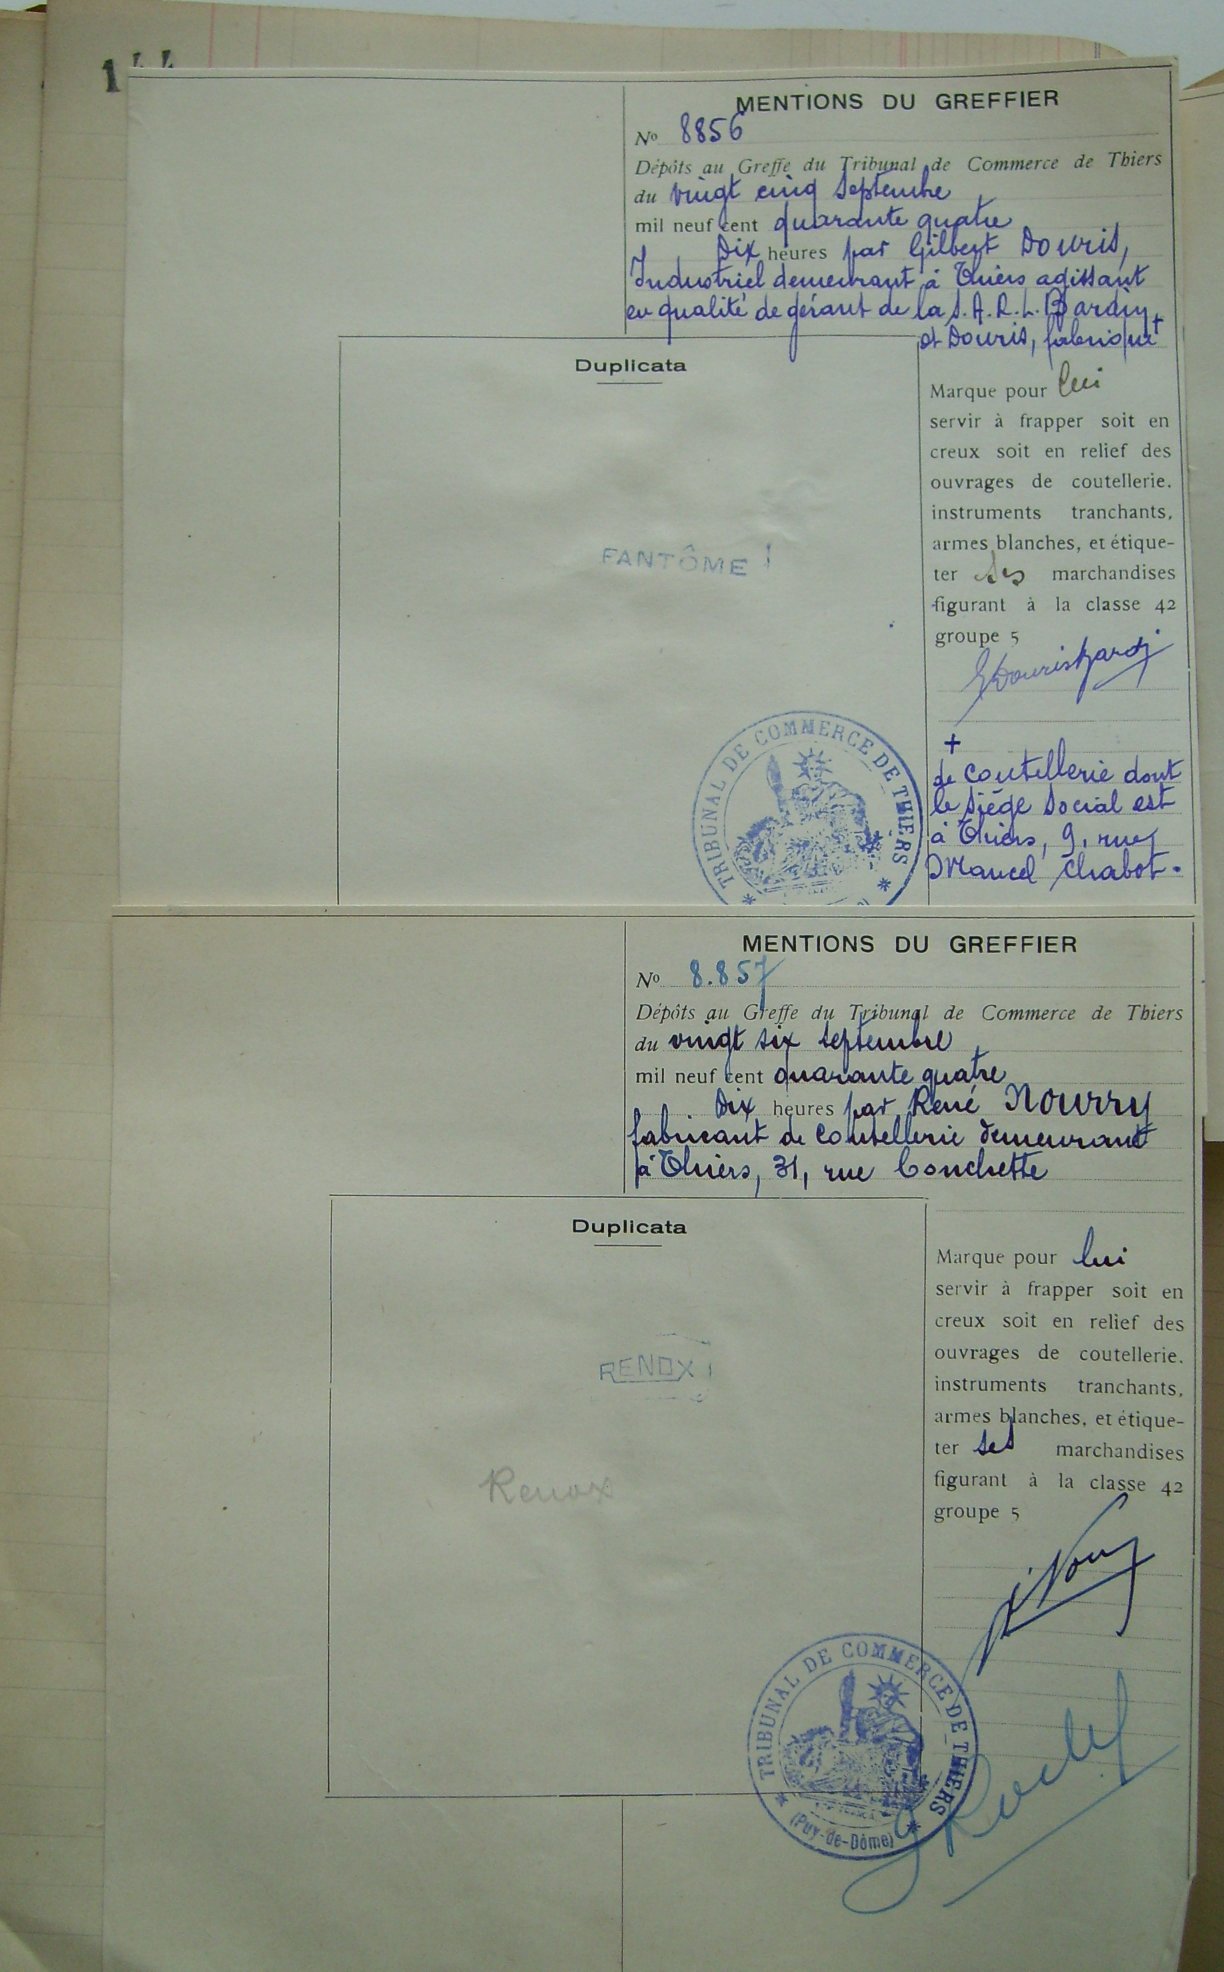 144
MENTIONS DU GREFFIER
No 8856
Dépôts au Greffe du Tribunal de Commerce de Thiers
du vingt cinq septembre
mil neuf cent quarante quatre
Dix heures par Gilbert Douris,
Industriel demeurant à Thiers agissant
en qualité de gérant de la S.A.R.L. Bardin
et Douris, fabrique +
Duplicata
FANTÔME
Marque pour lui
servir à frapper soit en
creux soit en relief des
ouvrages de coutellerie.
instruments tranchants,
armes blanches, et étique-
ter ses marchandises
figurant à la classe 42
groupe 5
+
de coutellerie dont
le siège social est
à Thiers, 9, rue
Marcel Chabot.
TRIBUNAL DE COMMERCE DE THIERS
MENTIONS DU GREFFIER
No 8.857
Dépôts au Greffe du Tribunal de Commerce de Thiers
du vingt six septembre
mil neuf cent quarante quatre
Dix heures par René Nourry
fabricant de coutellerie demeurant
à Thiers, 31, rue Conchette
Duplicata
RENOX
Renox
Marque pour lui
servir à frapper soit en
creux soit en relief des
ouvrages de coutellerie.
instruments tranchants,
armes blanches, et étique-
ter ses marchandises
figurant à la classe 42
groupe 5
TRIBUNAL DE COMMERCE DE THIERS
(Puy-de-Dôme)